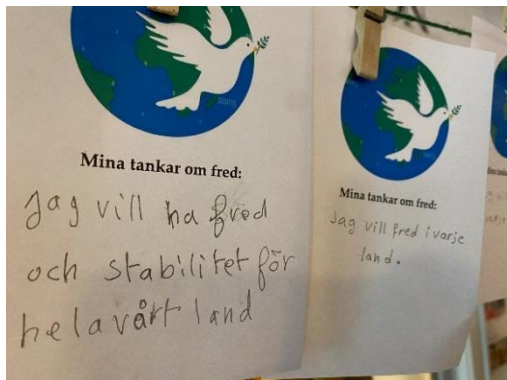 Mina tankar om fred:
Jag vill ha fred
och stabilitet för
hela vårt land
Mina tankar om fred:
Jag vill fred i varje
land.